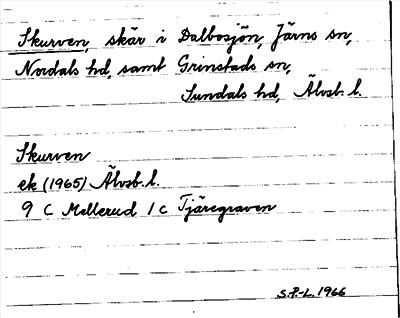 Skurven, skär i Dalbosjön, Järns sn,
Nordals hd, samt Grinstads sn,
Sundals hd, Älvsb. l.
Skurven
ek (1965) Älvsb. l.
9 C Mellerud 1 c Tjäregraven
S.P.-L. 1966